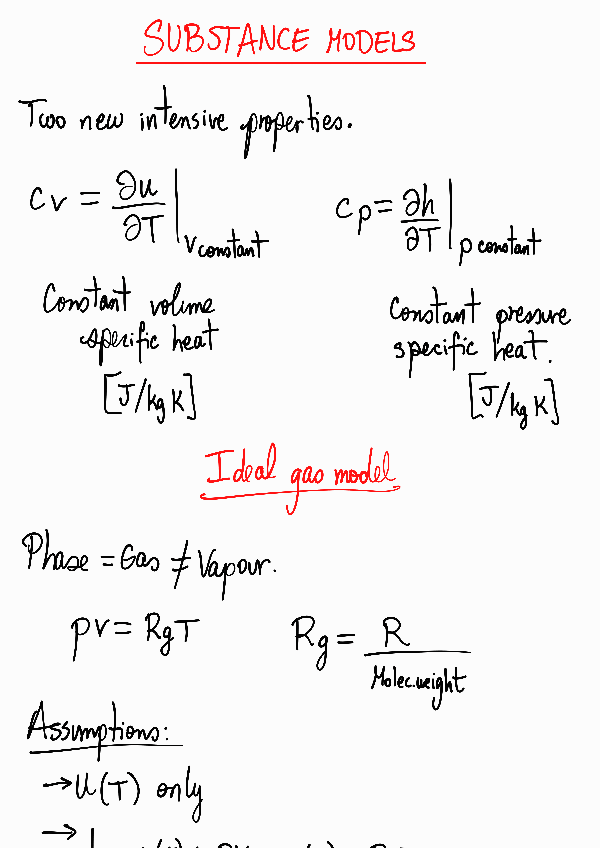 SUBSTANCE MODELS
Two new intensive properties.
Cv = ∂u/∂T |v constant
Cp = ∂h/∂T |p constant
Constant volume
specific heat
[J/kg K]
Constant pressure
specific heat.
[J/kg K]
Ideal gas model
Phase = Gas ≠ Vapour.
pv = RgT
Rg = R / Molec.weight
Assumptions:
→ u(T) only
→